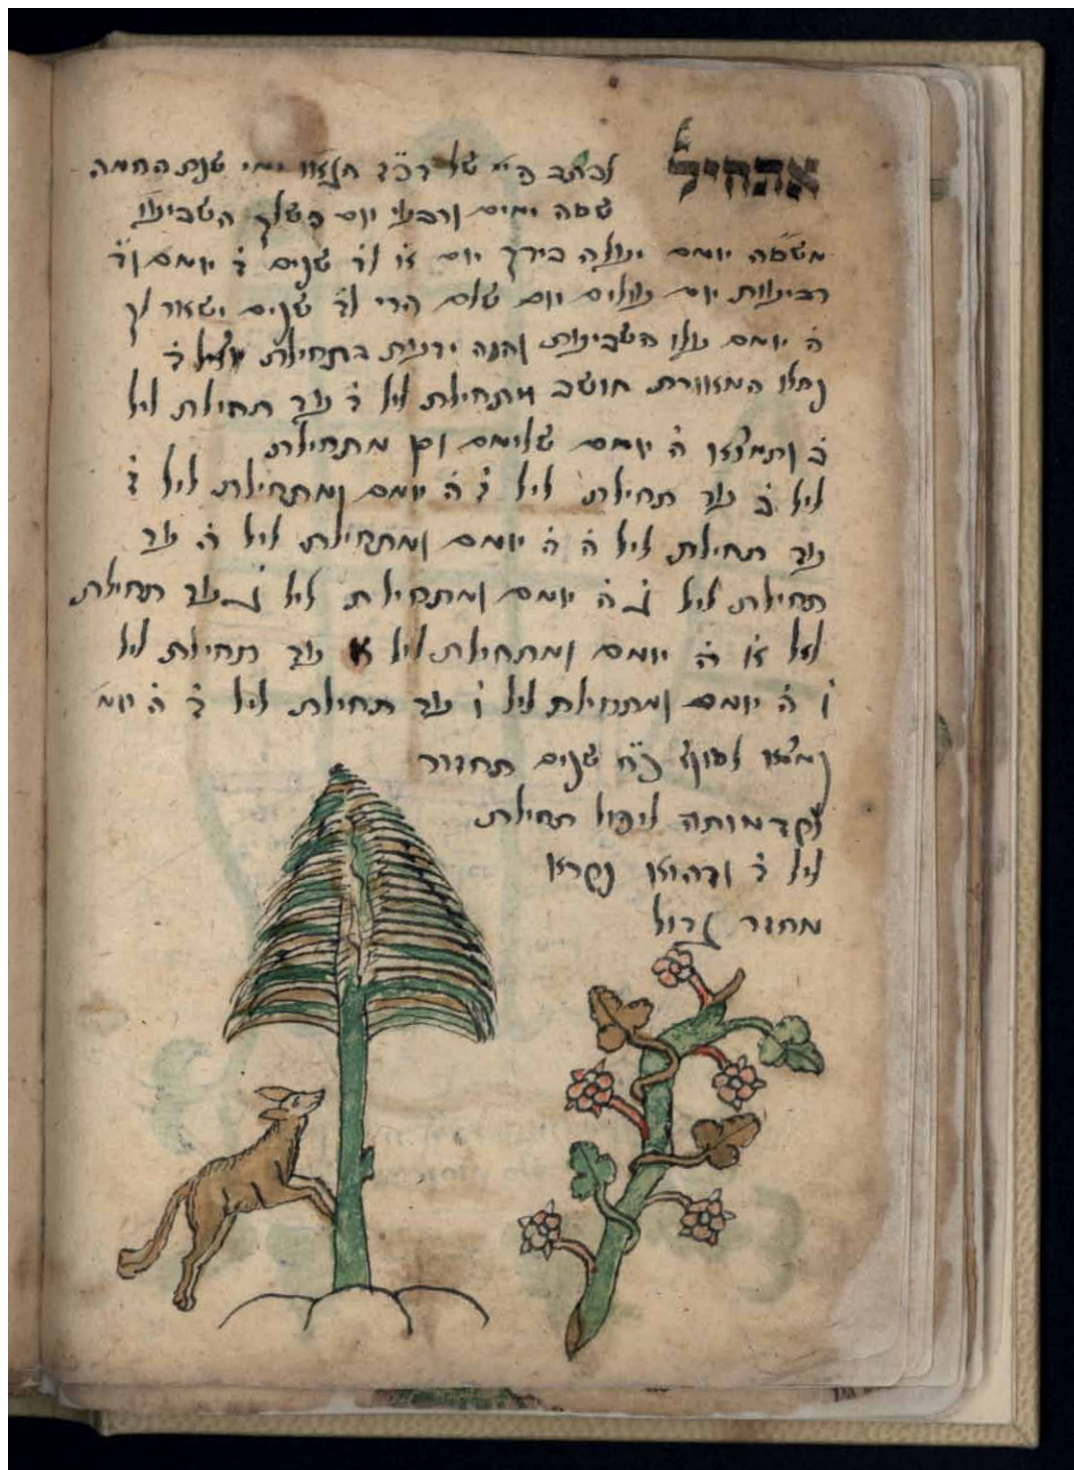 אתחיל לכתב ה׳ של ר״ד תמצא ימי שנת החמה
שסה ימים ורביע יום השלך השביעיו
משסה יומם יעלה בידך יום א׳ וד׳ שנים ד׳ יומם וד׳
רביעיות יום עולים יום שלם הרי לד׳ שנים ישאר לך
ה׳ יומם עלו השביעיות והנה ידעת בתחילת ליל ד׳
נתלו המאורות חושב מתחילת ליל ד׳ עד תחילת ליל
ב׳ ותמצא ה׳ יומם שלימם וכן מתחילת
ליל ב׳ עד תחילת ליל ז׳ ה׳ יומם ומתחילת ליל ז׳
עד תחילת ליל ה׳ ה׳ יומם ומתחילת ליל ה׳ עד
תחילת ליל ג׳ ה׳ יומם ומתחילת ליל ג׳ עד תחילת
ליל א׳ ה׳ יומם ומתחילת ליל א׳ עד תחילת ליל
ו׳ ה׳ יומם ומתחילת ליל ו׳ עד תחילת ליל ד׳ ה׳ יומ
נמצא לסוף כ״ח שנים תחזור
לקדמותה ליפול תחילת
ליל ד׳ וזהוא נקרא
מחזור גדול